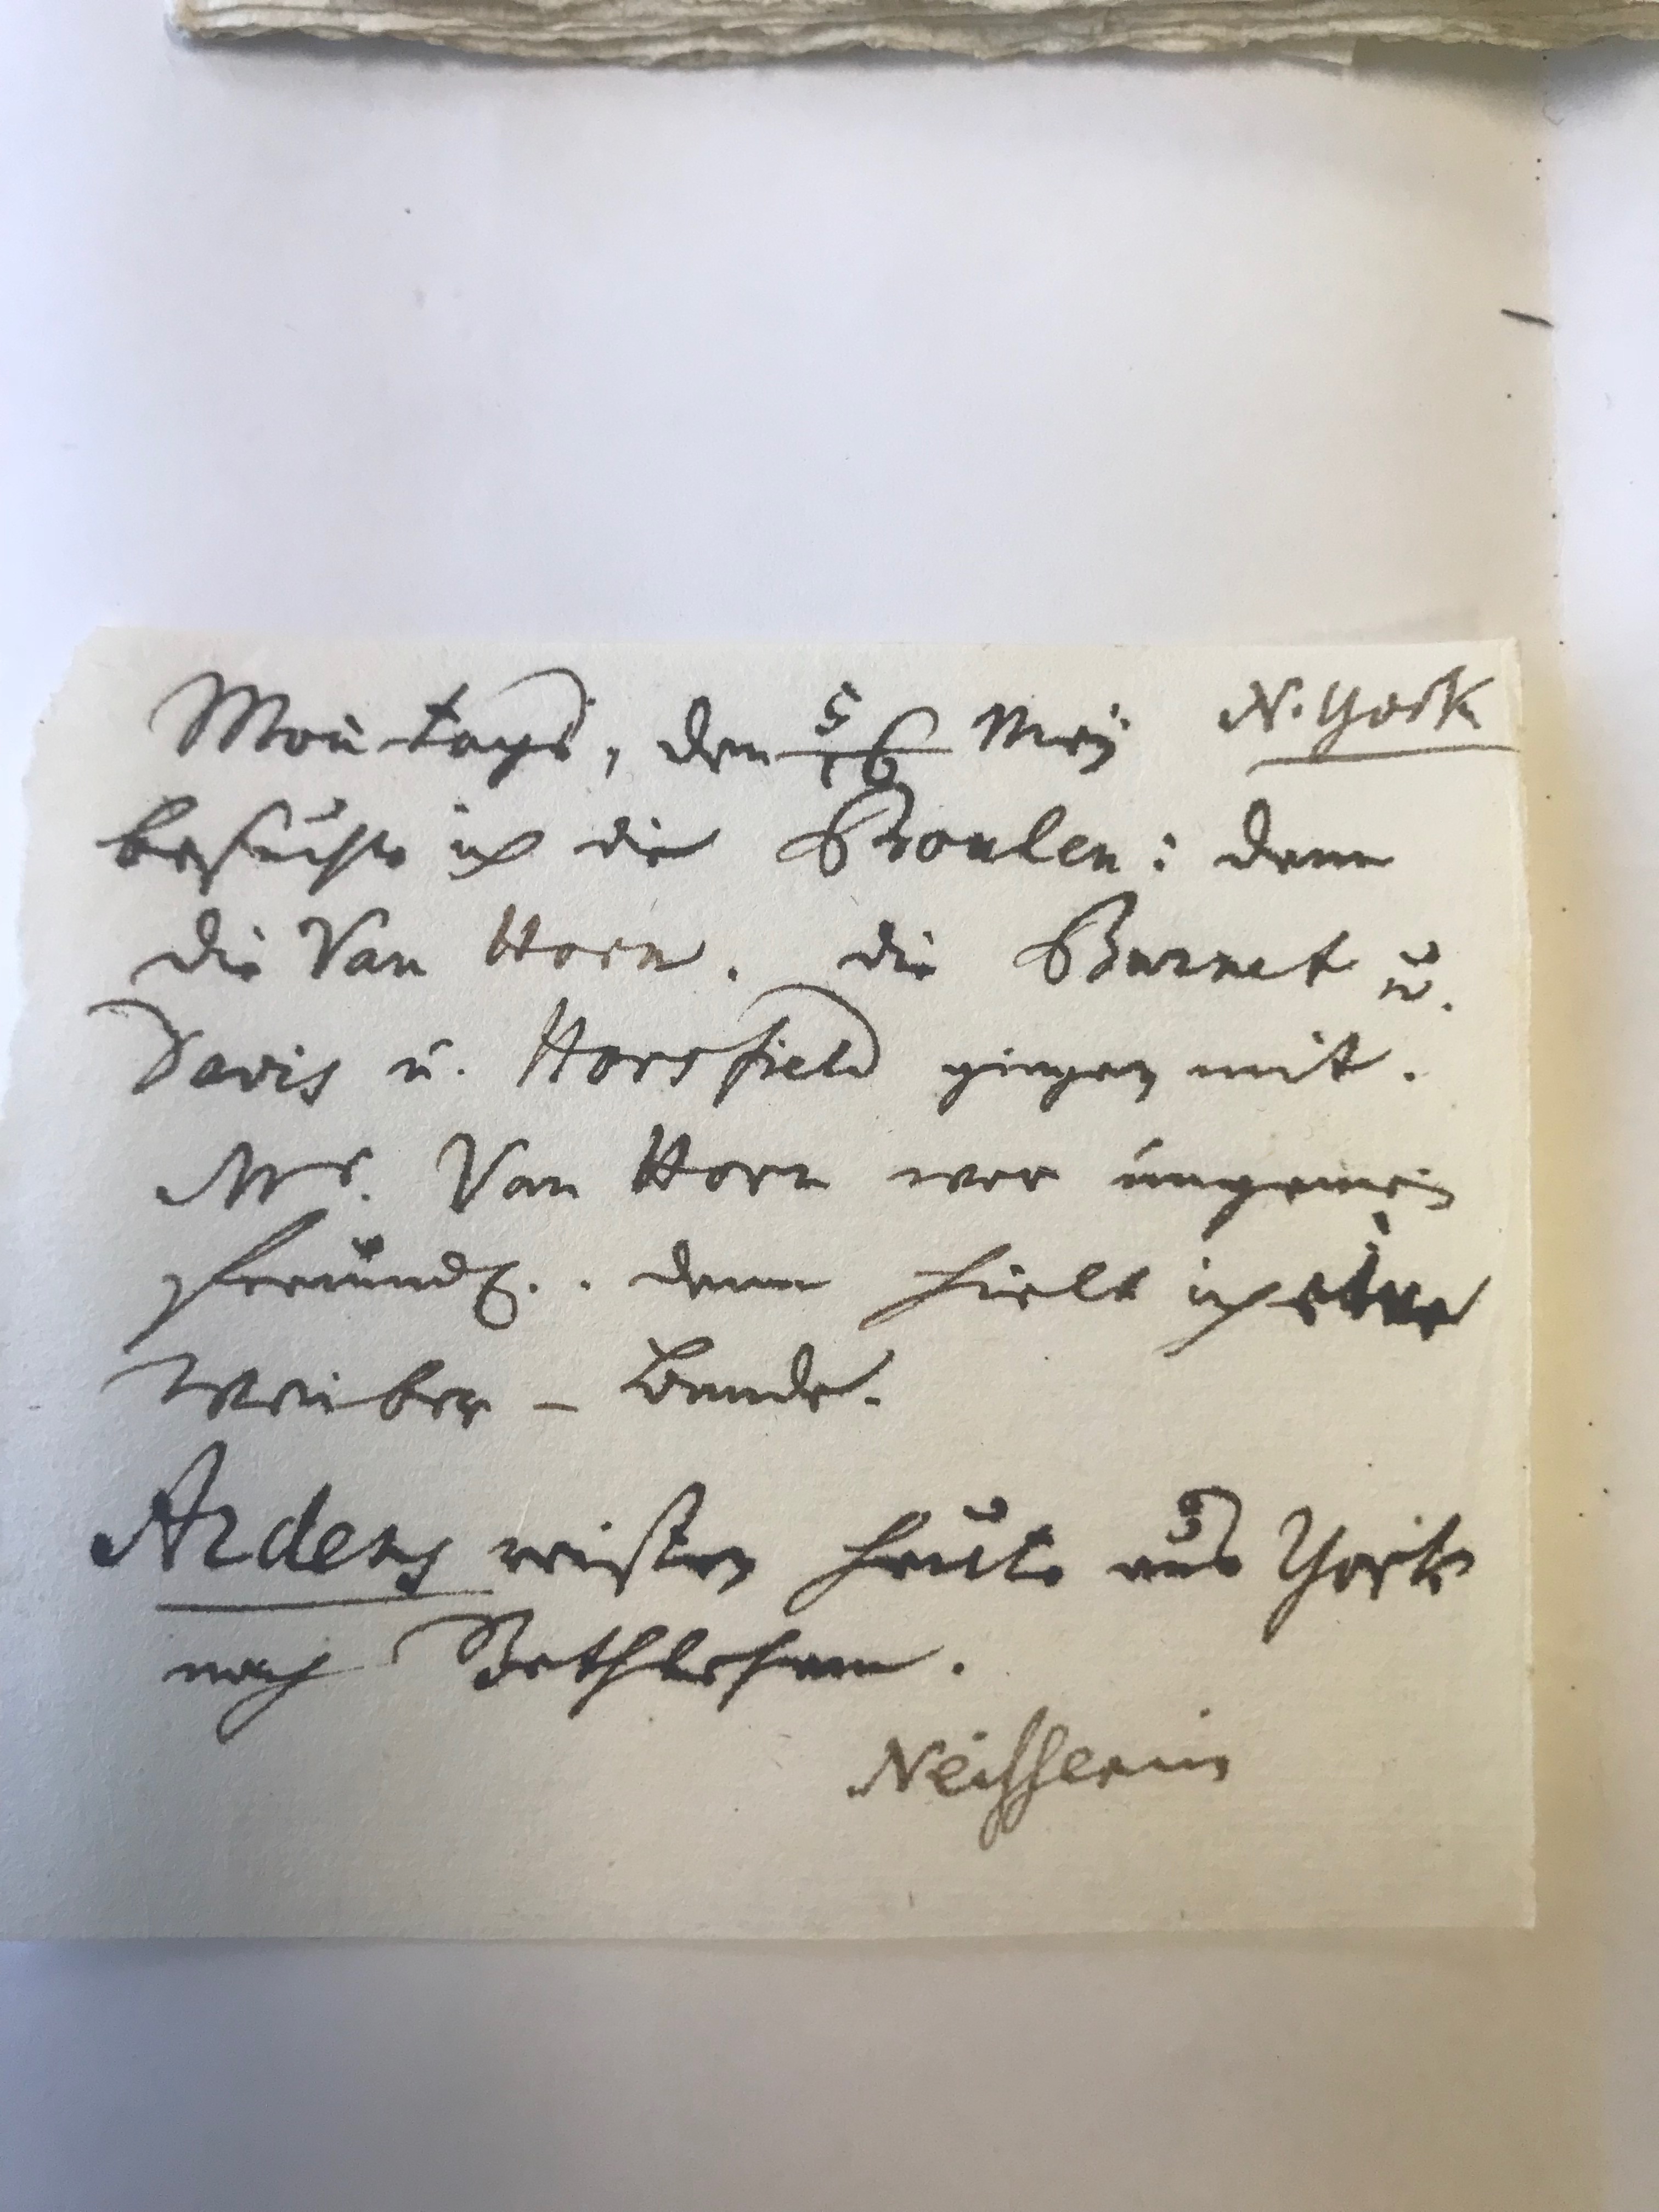 Montags, den 5/16 May N. York
besuchte ich die Broulen: denn
die Van Horn. die Burnet u.
Davis u. Horsfield gingen mit.
Mrs. Van Horn war ungemein
freundl. denn hielt ich eine
Weiber-Bande.
Ardens reisten heute aus York
nach Bethlehem.
Neisserin